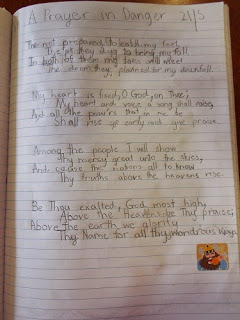 A Prayer in Danger 21/5
They've prepared to catch my feet
pits they dug to bring my fall
In both of them my foes will meet
the doom they planned for my downfall.
My heart is fixed, O God, on Thee;
My heart and voice a song shall raise,
And all the powers that in me be
Shall rise up early and give praise.
Among the people I will show
Thy mercy great unto the skies,
And cause the nations all to know
Thy truths above the heavens rise.
Be Thou exalted, God most high,
Above the Heavens be Thy praise;
Above the earth we glorify
Thy Name for all thy wondrous Ways